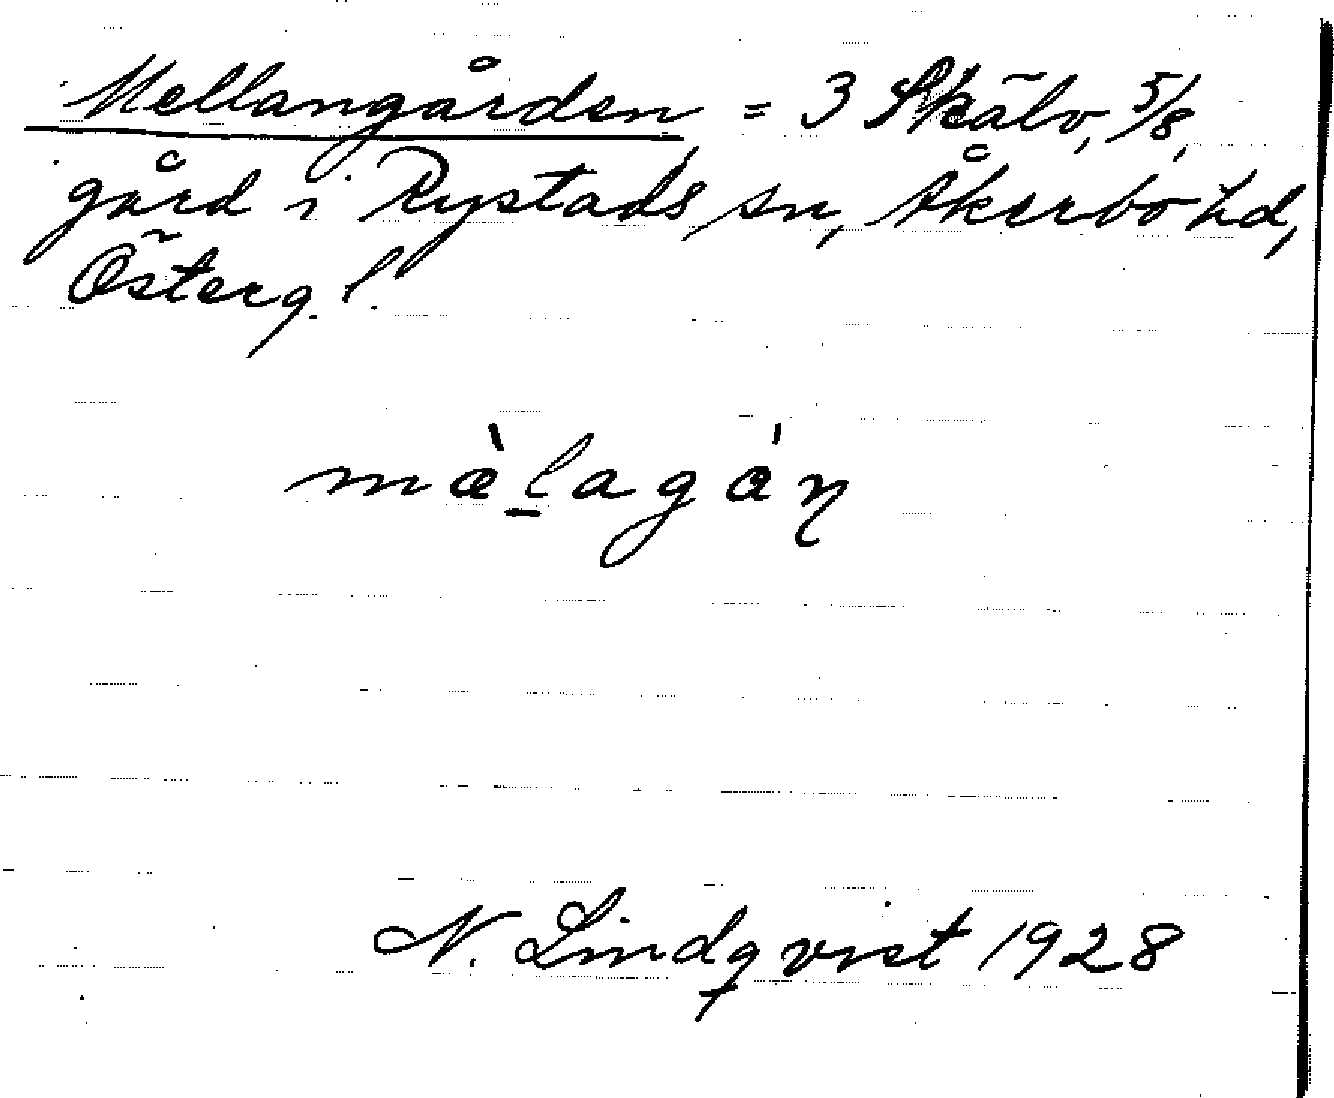 Mellangården = 3 Skälv, 5/8,
gård i Rystads sn, Åkerbo hd,
Österg. l.
mæ̀l̲agán̥
N. Lindqvist 1928